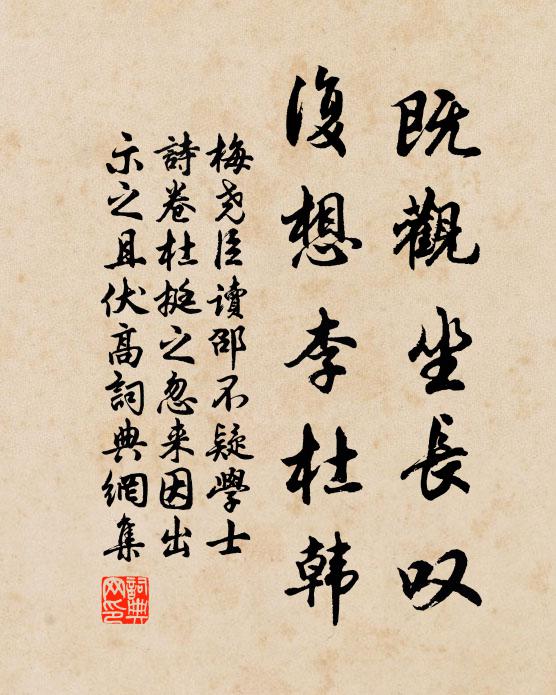 既觀坐長叹
復想李杜韩
梅尧臣讀邵不疑學士
詩卷杜挺之忽来因出
示之且伏高詞典網集
詞典网印